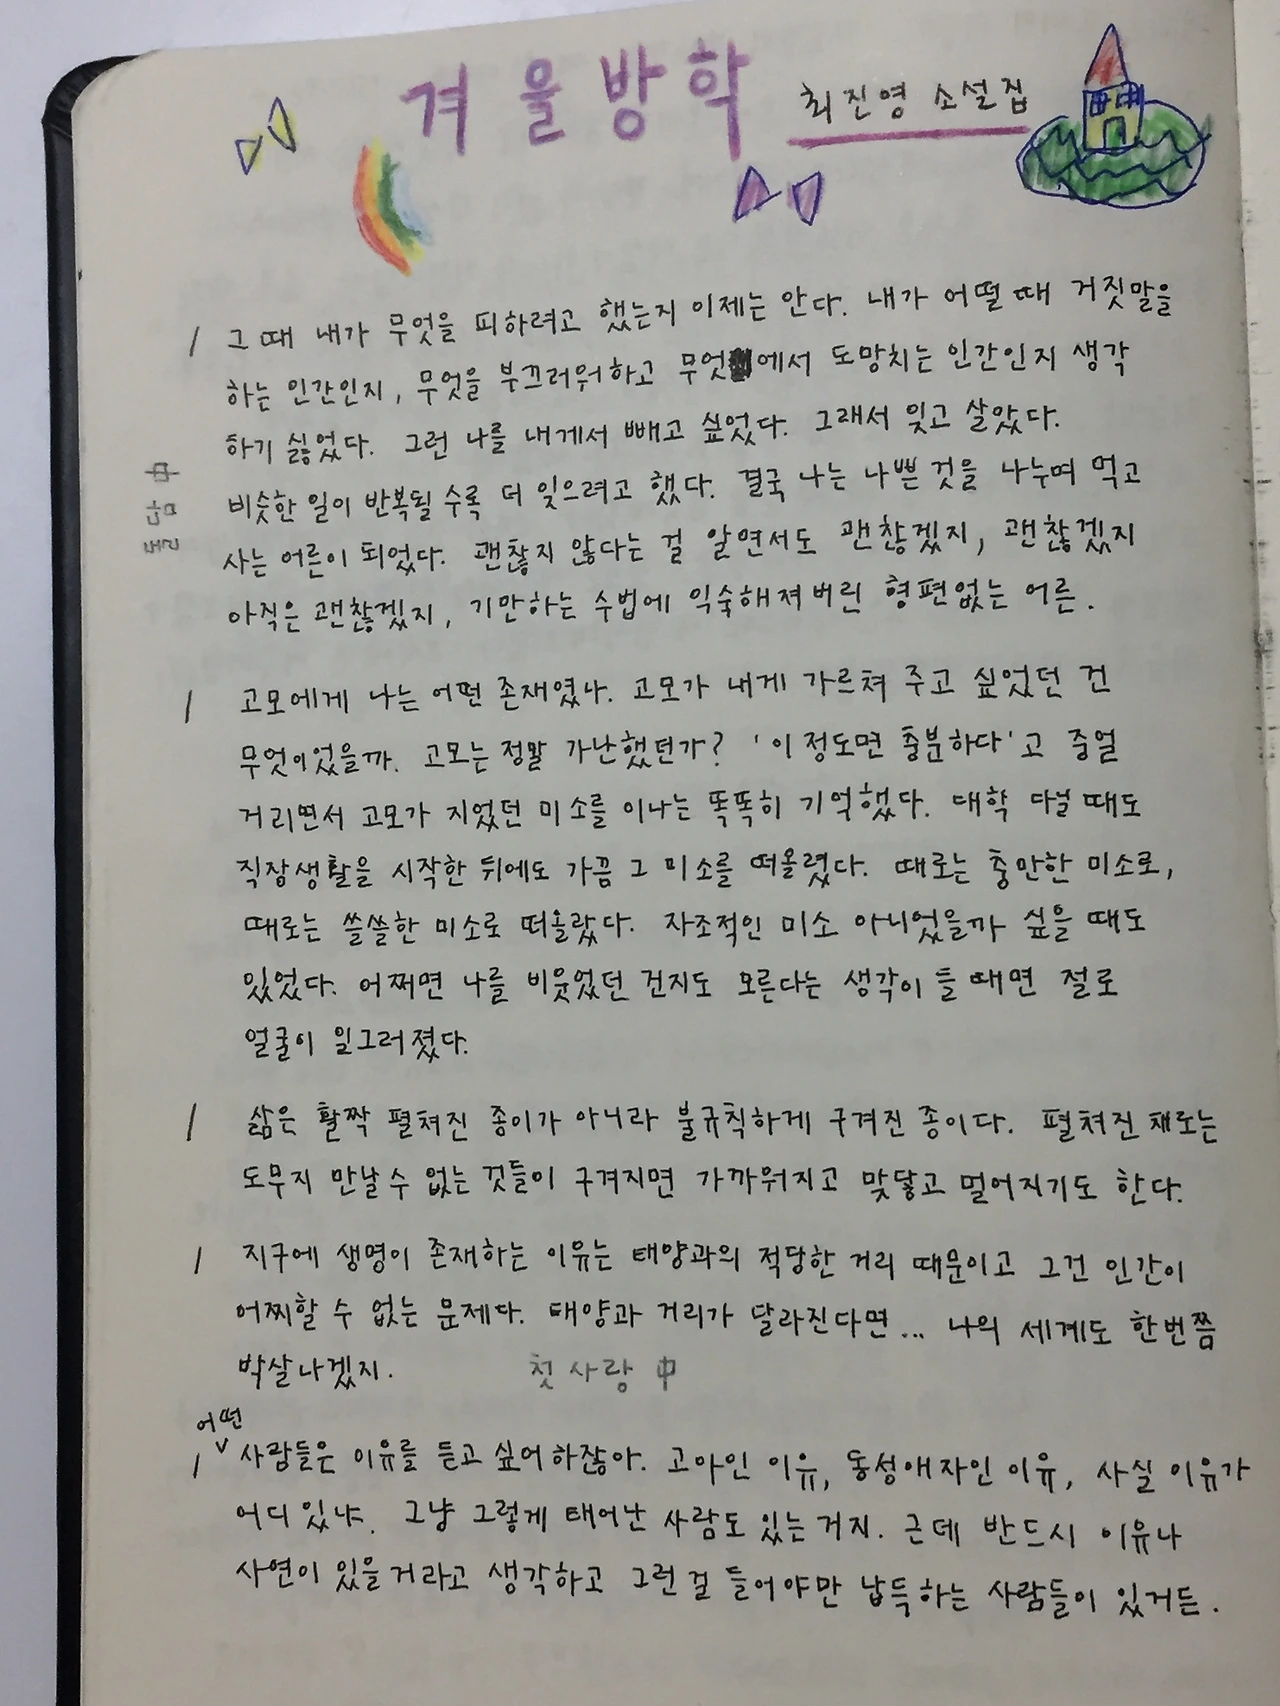 겨울방학 최진영 소설집
/ 그때 내가 무엇을 피하려고 했는지 이제는 안다. 내가 어떨 때 거짓말을
하는 인간인지, 무엇을 부끄러워하고 무엇에서 도망치는 인간인지 생각
하기 싫었다. 그런 나를 내게서 빼고 싶었다. 그래서 잊고 살았다.
비슷한 일이 반복될 수록 더 잊으려고 했다. 결국 나는 나쁜 것을 나누며 먹고
사는 어른이 되었다. 괜찮지 않다는 걸 알면서도 괜찮겠지, 괜찮겠지
아직은 괜찮겠지, 기만하는 수법에 익숙해져버린 형편없는 어른.
돌담 中
/ 고모에게 나는 어떤 존재였나. 고모가 내게 가르쳐 주고 싶었던 건
무엇이었을까. 고모는 정말 가난했던가? '이 정도면 충분하다'고 중얼
거리면서 고모가 지었던 미소를 이나는 똑똑히 기억했다. 대학 다닐 때도
직장생활을 시작한 뒤에도 가끔 그 미소를 떠올렸다. 때로는 충만한 미소로,
때로는 쓸쓸한 미소로 떠올랐다. 자조적인 미소 아니었을까 싶을 때도
있었다. 어쩌면 나를 비웃었던 건지도 모른다는 생각이 들 때면 절로
얼굴이 일그러졌다.
/ 삶은 활짝 펼쳐진 종이가 아니라 불규칙하게 구겨진 종이다. 펼쳐진 채로는
도무지 만날 수 없는 것들이 구겨지면 가까워지고 맞닿고 멀어지기도 한다.
/ 지구에 생명이 존재하는 이유는 태양과의 적당한 거리 때문이고 그건 인간이
어찌할 수 없는 문제다. 태양과 거리가 달라진다면... 나의 세계도 한번쯤
박살나겠지. 첫사랑 中
어떤
/ ∨ 사람들은 이유를 듣고 싶어하잖아. 고아인 이유, 동성애자인 이유, 사실 이유가
어디 있냐. 그냥 그렇게 태어난 사람도 있는 거지. 근데 반드시 이유나
사연이 있을거라고 생각하고 그런 걸 들어야만 납득하는 사람들이 있거든.